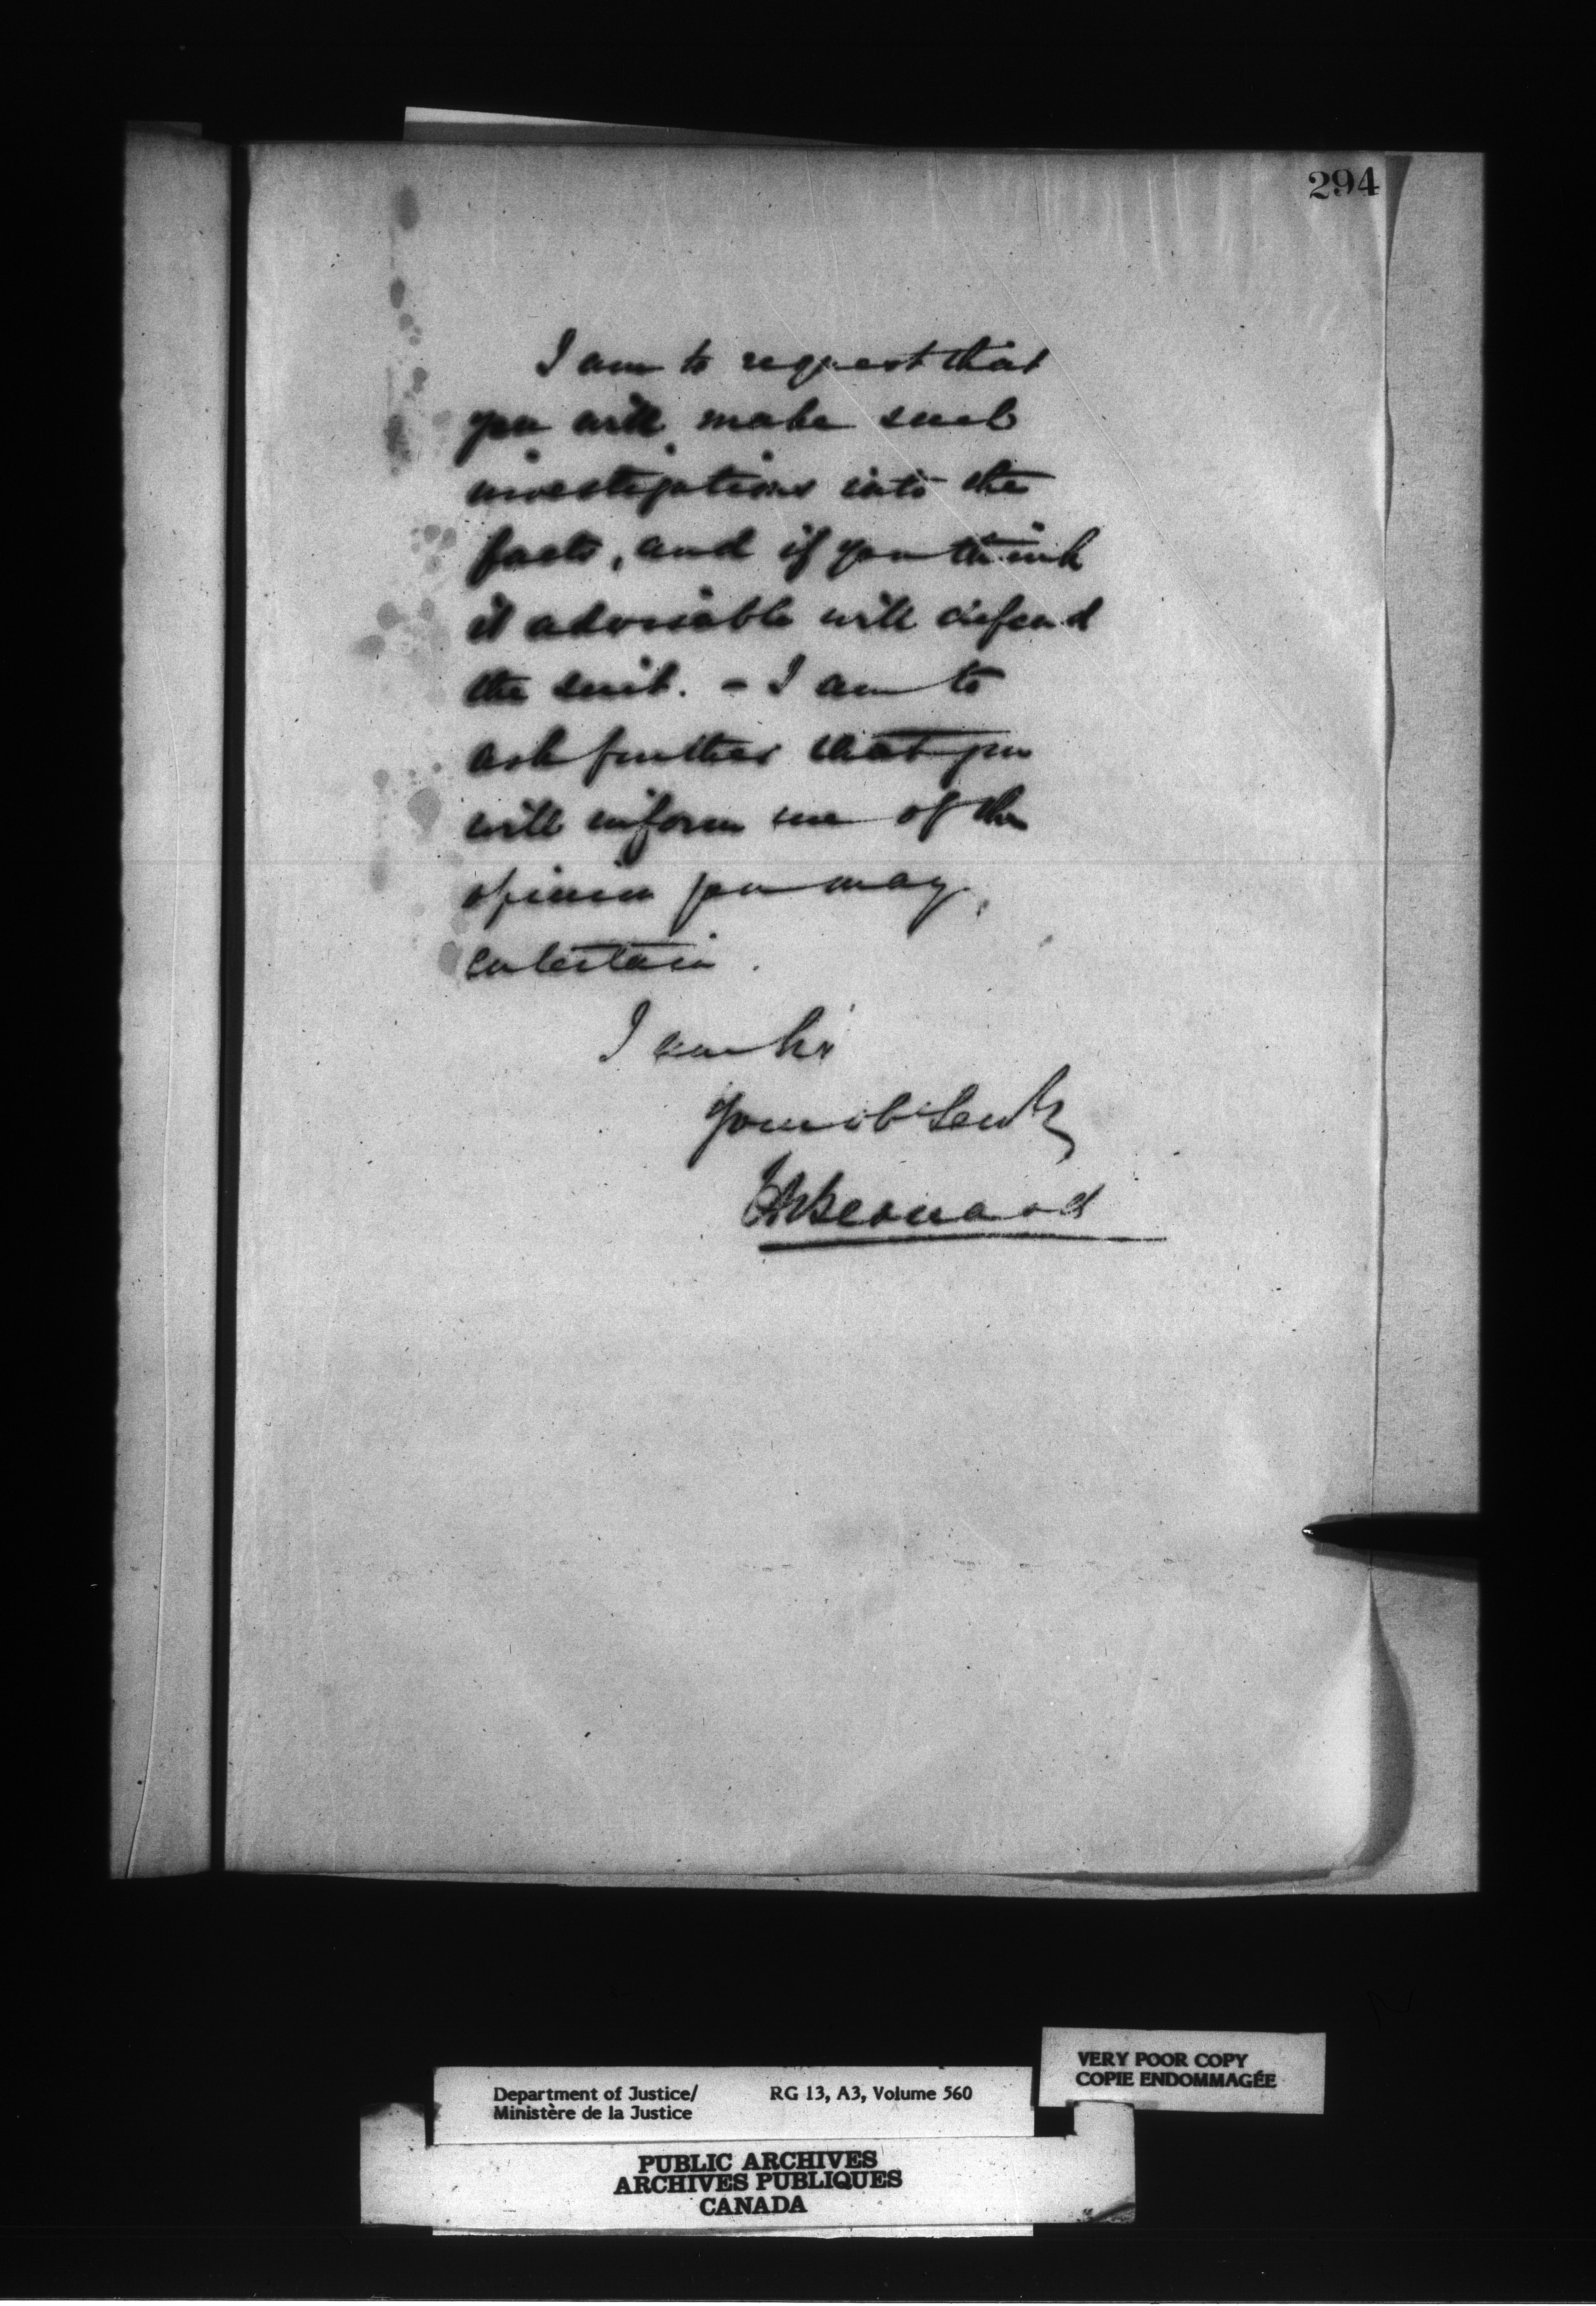 294
I am to request that
you will make such
investigations into the
facts, and if you think
it advisable will defend
the suit. - I am to
ask further that you
will inform me of the
opinion you may
entertain.
I am Sir
Your ob Servt
H Bernard
Department of Justice/ RG 13, A3, Volume 560
Ministère de la Justice
VERY POOR COPY
COPIE ENDOMMAGÉE
PUBLIC ARCHIVES
ARCHIVES PUBLIQUES
CANADA